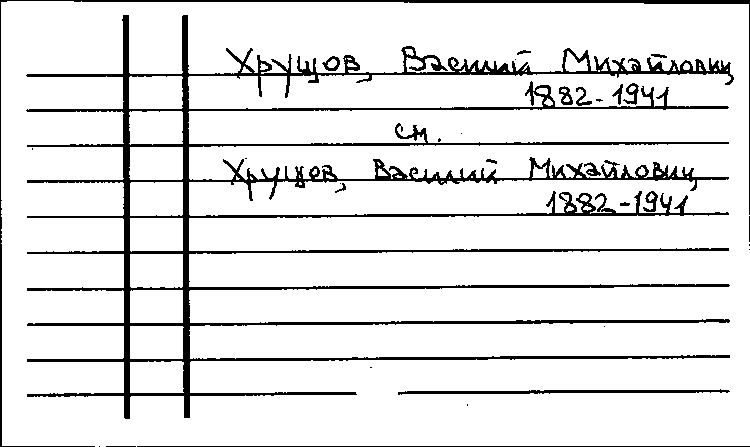 Хрущов, Василий Михайлович
1882-1941
см.
Хрущев, Василий Михайлович
1882-1941